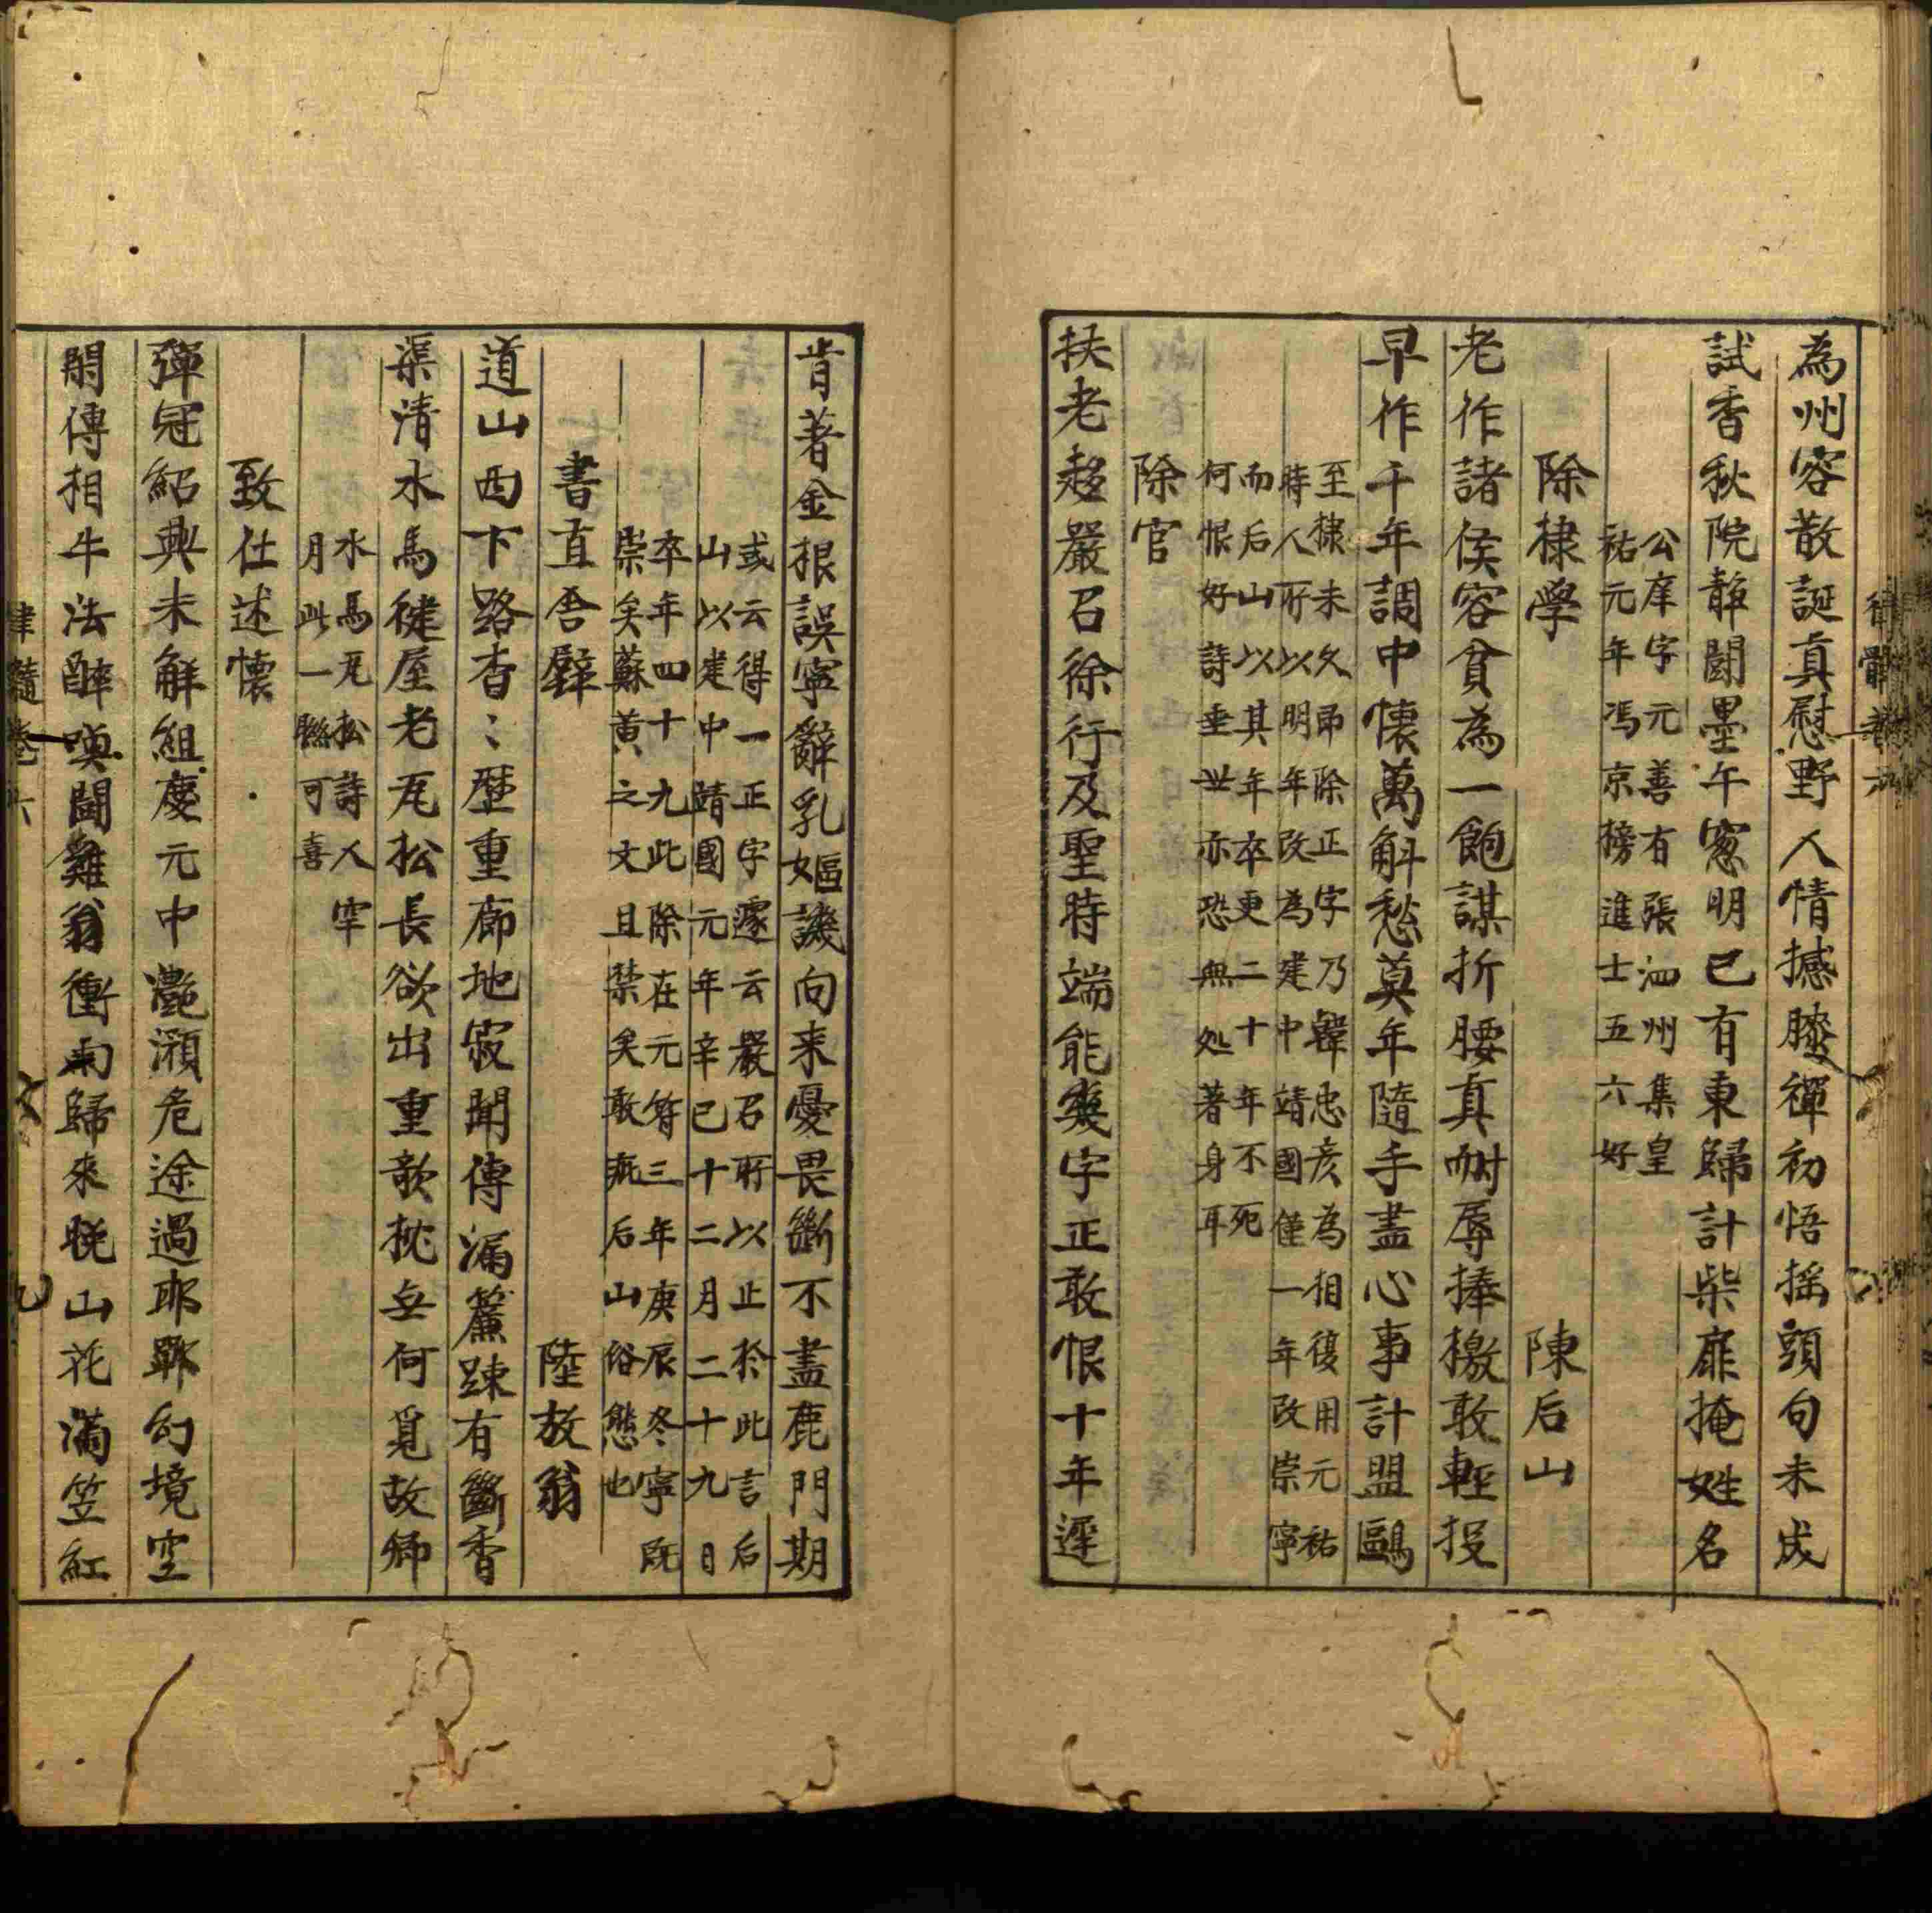 為州容散誕真慰野人情撼膝禪初悟搖頭句未成
試香秋院靜鬪墨午窓明已有東歸計柴扉掩姓名
公庠字元善有張泗州集皇
祐元年馮京榜進士五六好
除棣學 陳后山
老作諸侯客貧為一飽謀折腰真耐辱捧檄敢輕投
早作千年調中懷萬斛愁莫年隨手盡心事計盟鷗
至棣未久即除正字乃韓忠彦為相復用元祐
時人所以明年改為建中靖國僅一年改崇寧
而后山以其年卒更二十年不死
何恨好詩垂世亦恐無処著身耳
除官
扶老趍嚴召徐行及聖時端能幾字正敢恨十年遲
肯著金根誤寧辭乳嫗譏向来憂畏斷不盡鹿門期
或云得一正字遽云嚴召所以止於此言后
山以建中靖國元年辛巳十二月二十九日
卒年四十九此除在元符三年庚辰冬寧既
崇矣蘇黄之文且禁矣敢疵后山俗態也
書直舍壁 陸放翁
道山西下路杳〻歷重廊地寂聞傳漏簾踈有斷香
渠清水馬徤屋老瓦松長欲出重欹枕無何覓故鄉
水馬瓦松詩人罕
月此一聮可喜
致仕述懷
彈冠紹興末解組慶元中灧澦危途過邯鄲幻境空
閑傳相牛法醉喚鬪雞翁衝雨歸來晚山花滿笠紅
律髓卷六